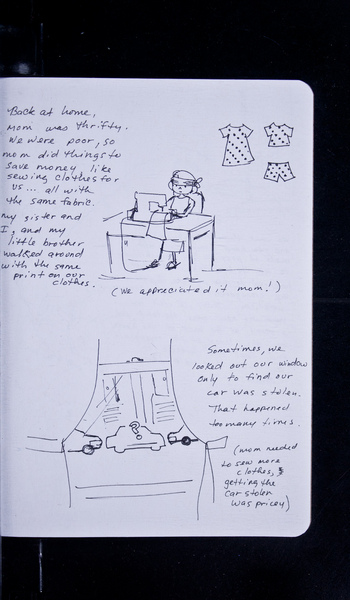 Back at home,
mom was thrifty.
We were poor, so
mom did things to
save money like
sewing clothes for
us... all with
the same fabric.
my sister and
I, and my
little brother
walked around
with the same
print on our
clothes.
(We appreciated it mom!)
Sometimes, we
looked out our window
only to find our
car was stolen.
That happened
too many times.
?
(mom needed
to sew more
clothes, &
getting the
car stolen
was pricey)